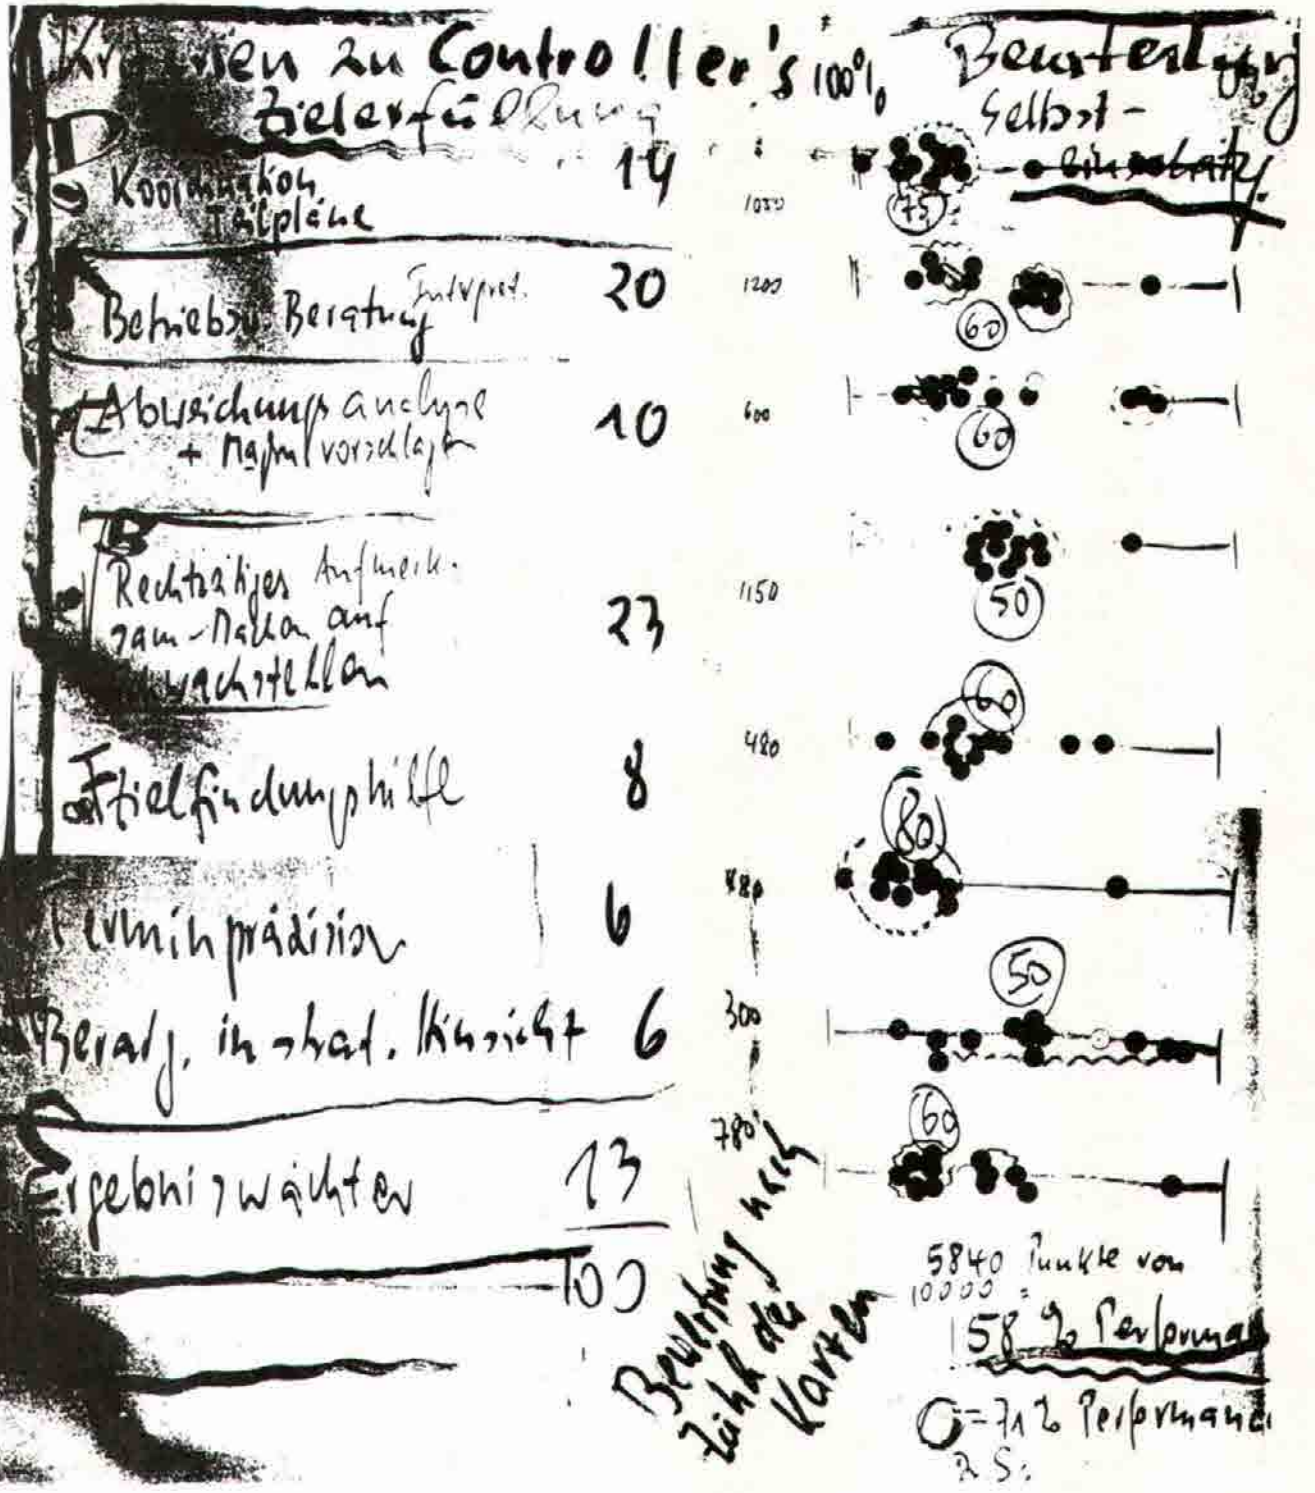 zu Controller's 100% Beurteilung
Zielerfüllung Selbst-
D einschätzg.
Koordination 14
Teilpläne
1050 75
Betriebsw. Beratung Interpret. 20 1200 60
Abweichungsanalyse 10 600 60
+ Maßn.vorschlägen
B
Rechtzeitiges Aufmerk-
sam-Machen auf 23 1150 50
Schwachstellen
Zielfindungshilfe 8 480 60
Terminpräzision 6 480 80
Beratg. in strat. Hinsicht 6 300 50
Ergebniswächter 13 780 60
100
Bewertung nach
Zahl der
Karten
5840 Punkte von
10000 =
58 % Performance
= 71 % Performance